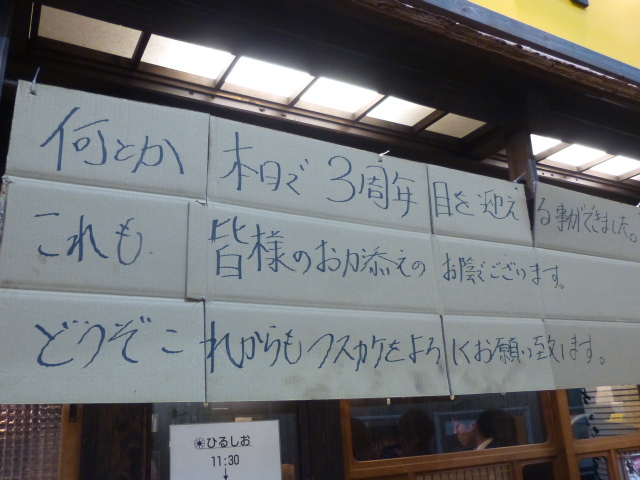 何とか本日で3周年目を迎える事ができました。
これも皆様のお力添えのお陰でございます。
どうぞこれからもフスカケをよろしくお願い致します。
ひるしお
11:30
↓